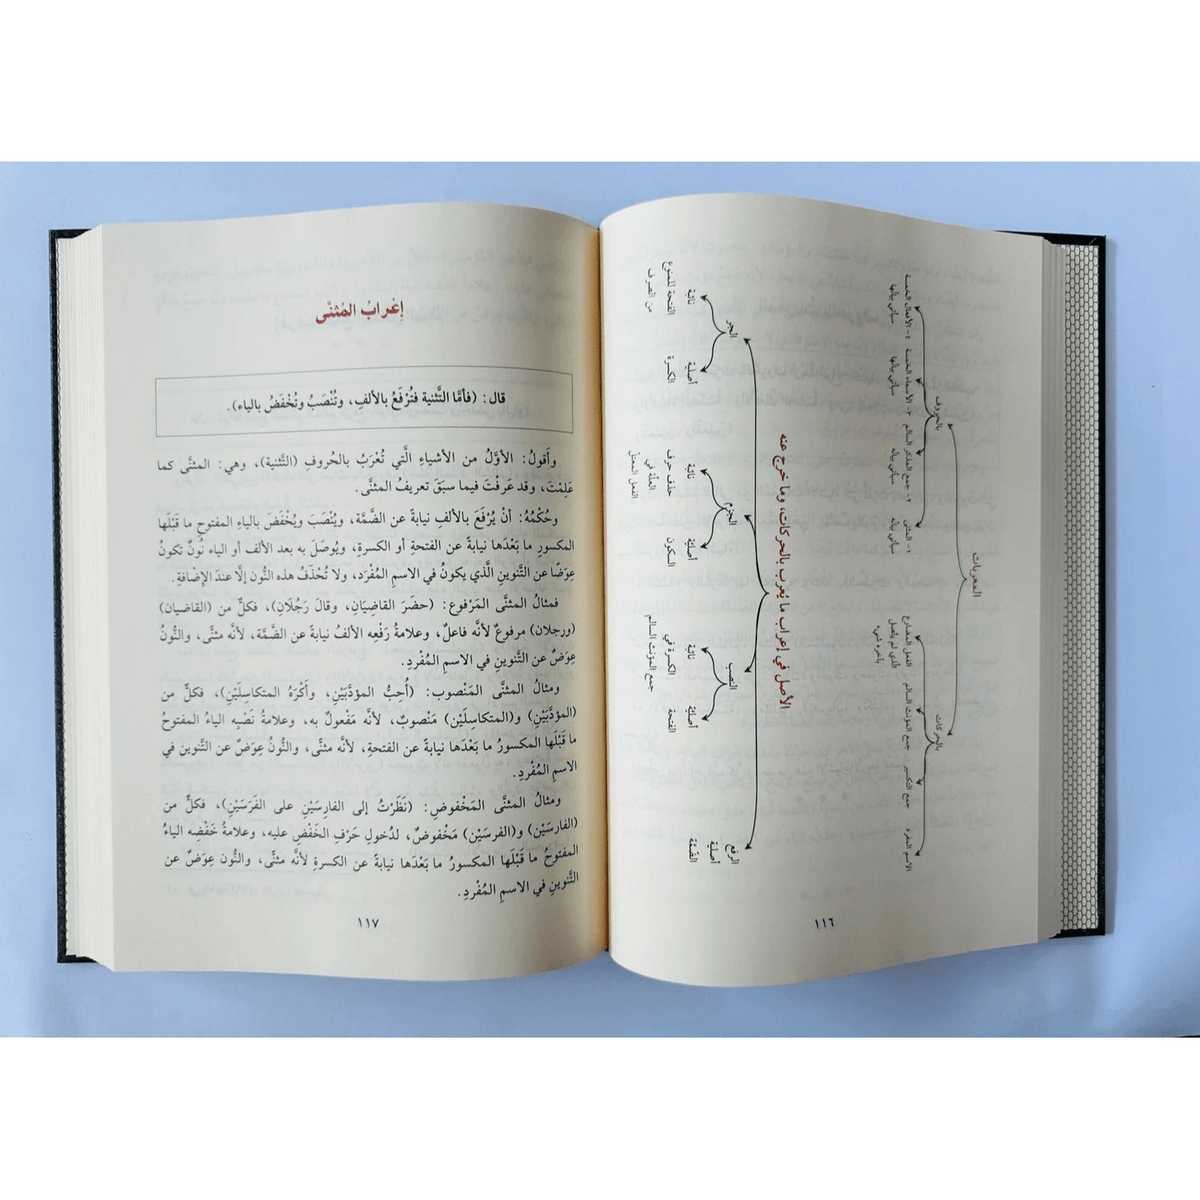 المعربات
بالحركات
بالحروف
الاسم المفرد
جمع التكسير
جمع المؤنث السالم
الفعل المضارع
الذي لم يتصل
بآخره شيء
١- المثنى
سيأتي بيانه
٢- جمع المذكر السالم
سيأتي بيانه
٣- الأسماء الخمسة
سيأتي بيانها
٤- الأفعال الخمسة
سيأتي بيانها
الأصل في إعراب ما يُعرب بالحركات، وما خرج عنه
الرفع
أصلية
الضَّمَّة
النصب
أصليّة
الفتحة
نائبة
الكسرة في
جمع المؤنث السالم
الجزم
أصليَّة
السكون
نائبة
حذف حرف
العلّة في
الفعل المعتلّ
الجر
أصلية
الكسرة
نائبة
الفتحة للممنوع
من الصرف
١١٦
إعْرابُ المُثنَّى
قال: (فأمَّا التَّثنية فتُرْفَعُ بالألفِ، وتُنْصَبُ وتُخْفَضُ بالياء).
وأقولُ: الأوَّلُ من الأشياءِ الَّتي تُعْرَبُ بالحُروفِ (التَّثنية)، وهي: المثنَّى كما
عَلِمْتَ، وقد عَرفْتَ فيما سبَقَ تعريفُ المثنَّى.
وحُكْمُهُ: أنْ يُرْفَعَ بالألفِ نيابةً عن الضَّمَّة، ويُنْصَبَ ويُخْفَضَ بالياءِ المفتوحِ ما قَبْلَها
المكسورِ ما بَعْدَها نيابةً عن الفتحةِ أو الكسرةِ، ويُوصَلَ به بعد الألف أو الياء نُونٌ تكونُ
عِوَضًا عن التَّنوينِ الَّذي يكونُ في الاسمِ المُفْرَد، ولا تُحْذَفُ هذه النُّون إلَّا عندَ الإضافةِ.
فمثالُ المثنَّى المَرْفوع: (حضَرَ القاضِيَانِ، وقالَ رَجُلَان)، فكلٌّ من (القاضيان)
و(رجلان) مرفوعٌ لأنَّه فاعلٌ، وعلامةُ رَفْعِه الألفُ نيابةً عن الضَّمَّة، لأنَّه مثنًّى، والنُّونُ
عِوَضٌ عن التَّنوينِ في الاسمِ المُفْردِ.
ومثالُ المثنَّى المَنْصوب: (أُحِبُّ المؤدَّبَيْنِ، وأكْرَهُ المتكاسِلَيْنِ)، فكلٌّ من
(المؤدَّبَيْنِ) و(المتكاسِلَيْن) مَنْصوبٌ، لأنَّه مَفْعولٌ به، وعلامةُ نَصْبِه الياءُ المفتوحُ
ما قَبْلَها المكسورُ ما بَعْدَها نيابةً عن الفتحةِ، لأنَّه مثنًّى، والنُّونُ عِوَضٌ عن التَّنوينِ في
الاسمِ المُفْردِ.
ومثالُ المثنَّى المَخْفوض: (نَظَرْتُ إلى الفارِسَيْنِ على الفَرَسَيْنِ)، فكلٌّ من
(الفارسَيْن) و(الفرسَيْنِ) مَخْفوضٌ، لدُخولِ حَرْفِ الخَفْضِ عليه، وعلامةُ خَفْضِه الياءُ
المفتوحُ ما قَبْلَها المكسورُ ما بَعْدَها نيابةً عن الكسرةِ لأنَّه مثنًّى، والنُّون عِوَضٌ عن
التَّنوينِ في الاسمِ المُفْردِ.
١١٧